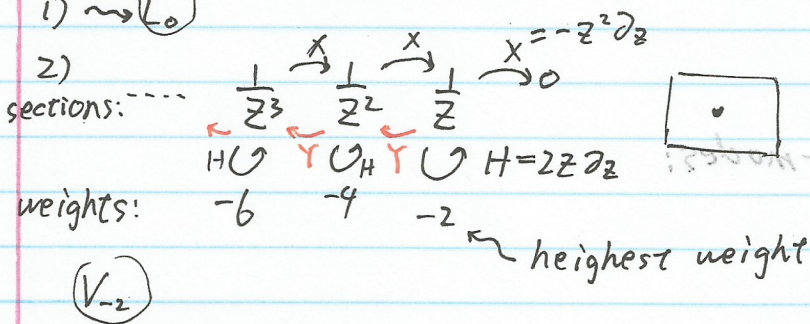 1) ⇝ L₀
X X X = -z²∂z
2)
sections: ---- 1/z³ 1/z² 1/z 0
H Y H Y H = 2z∂z
weights: -6 -4 -2
heighest weight
V₋₂